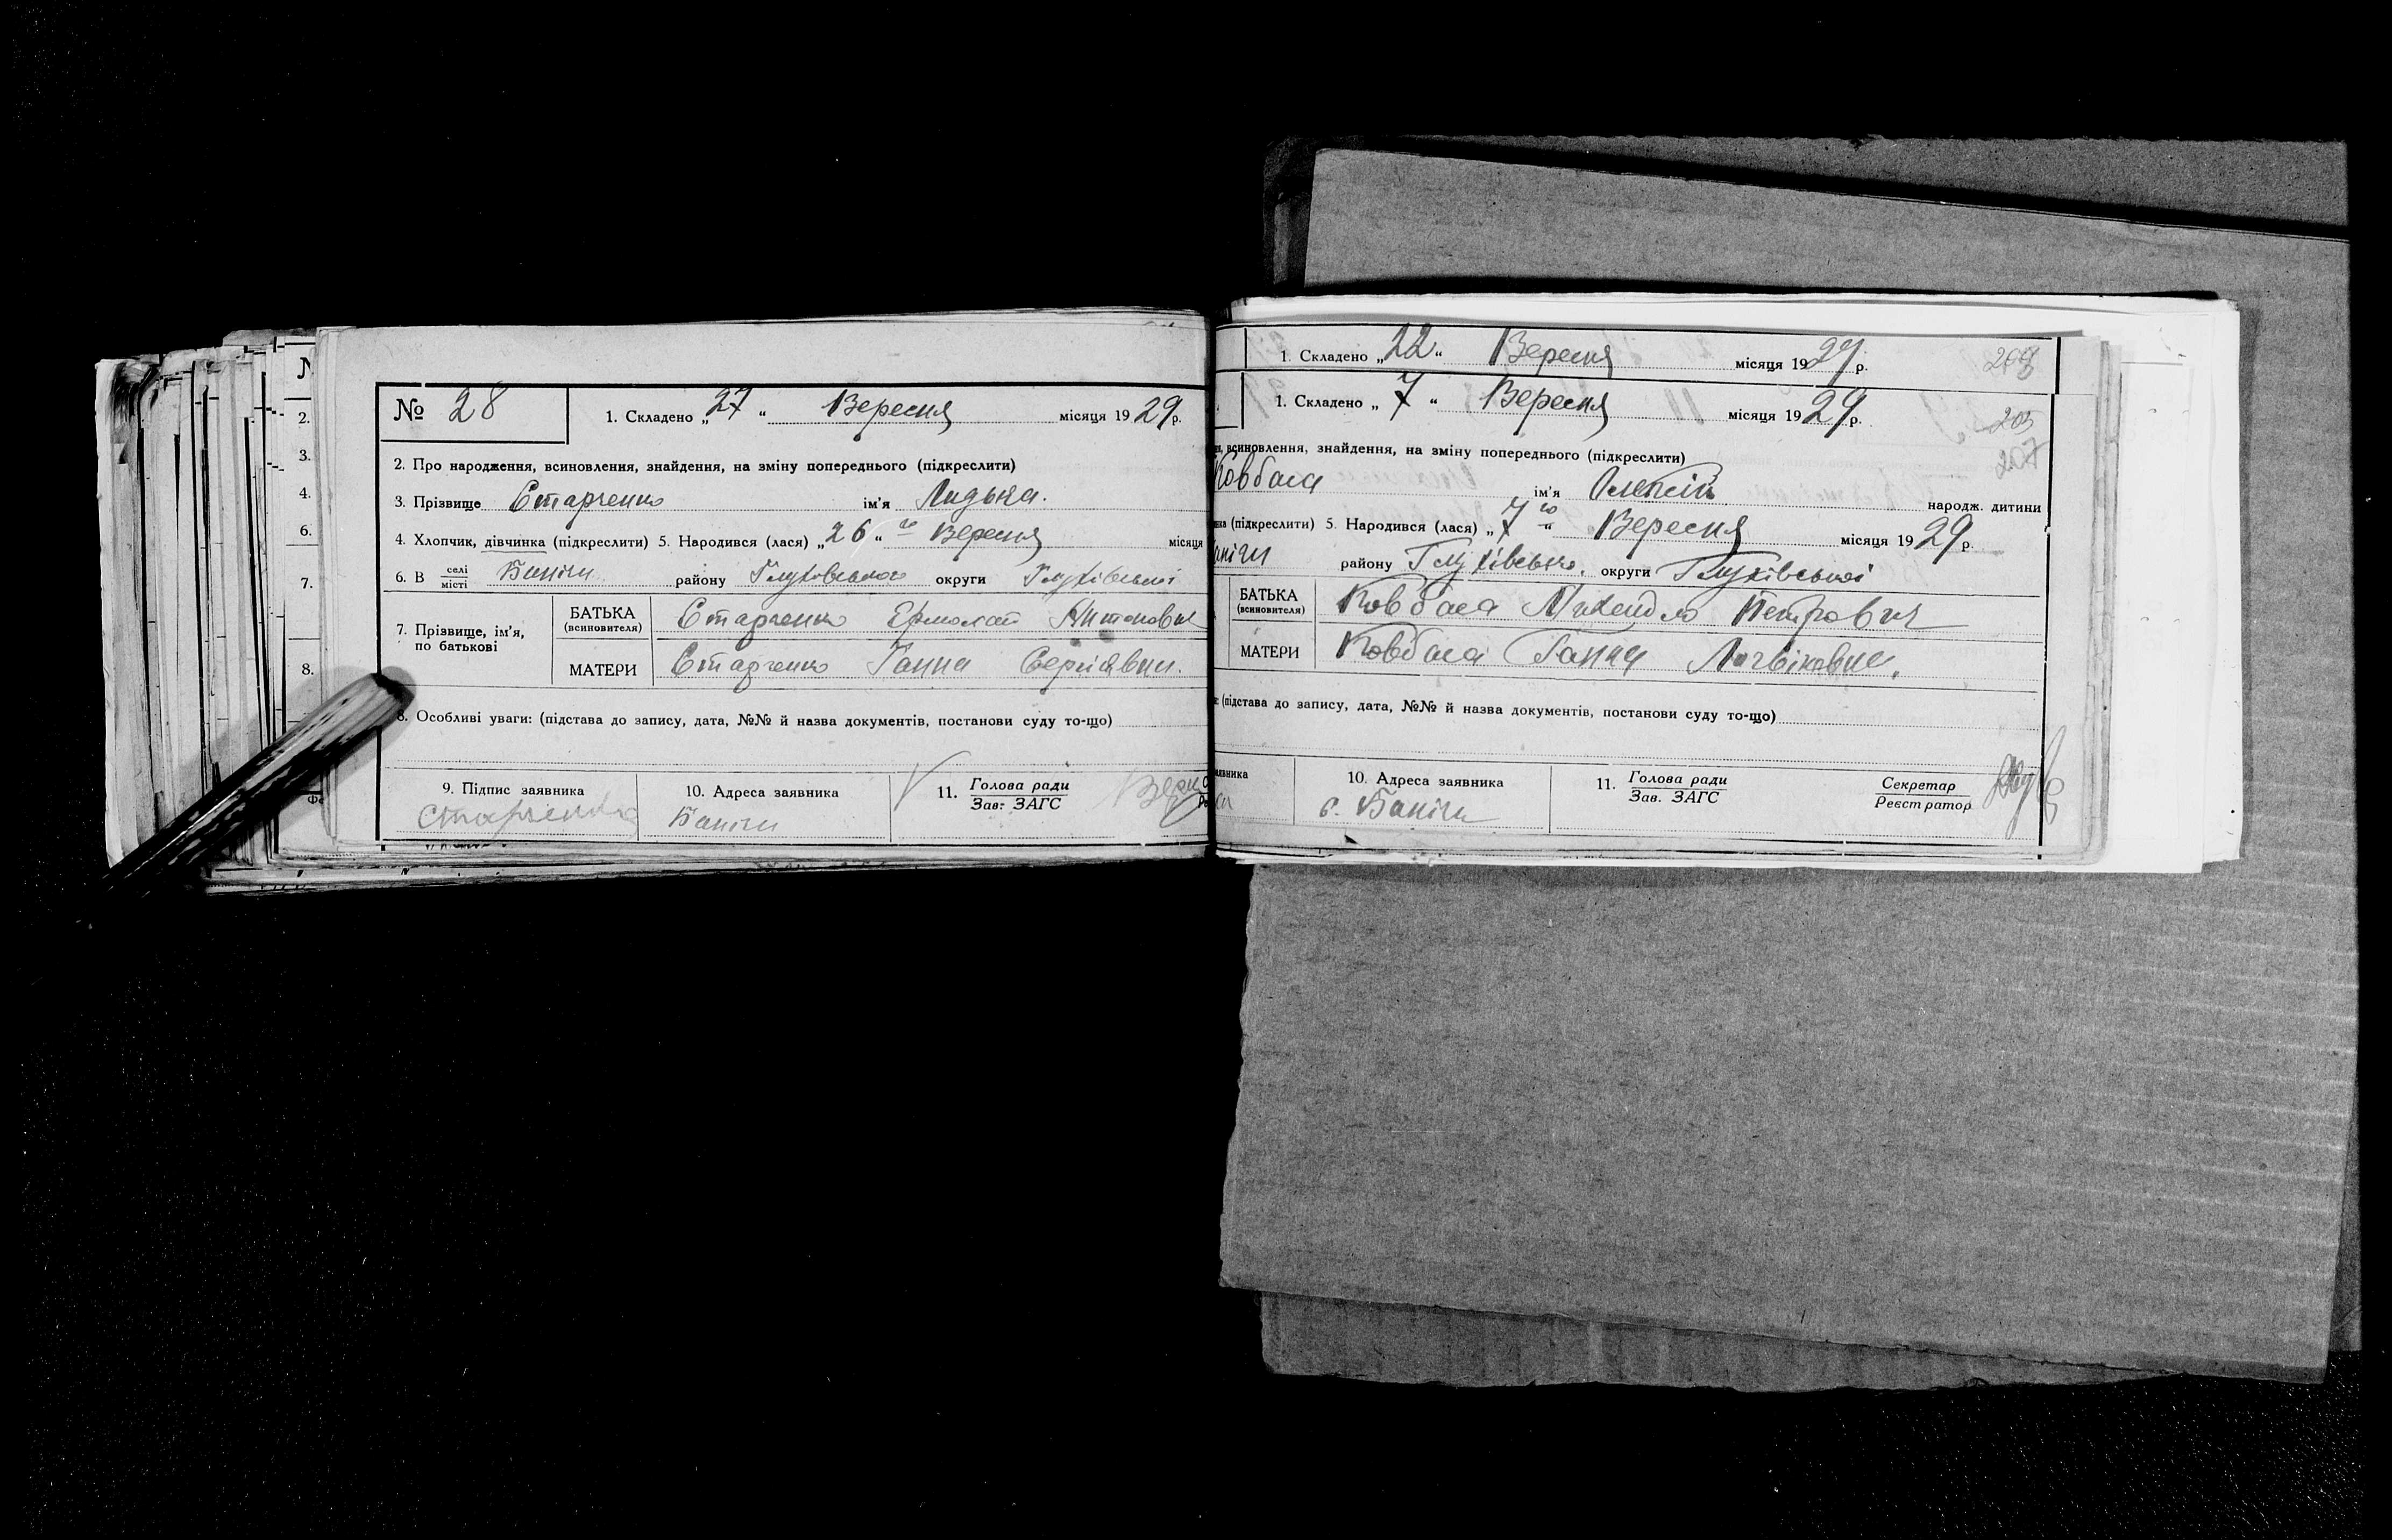 № 28
1. Складено „27“ Вересня місяця 1929 р.
2. Про народження, всиновлення, знайдення, на зміну попереднього (підкреслити)
3. Прізвище Старченко ім'я Лидька.
4. Хлопчик, дівчинка (підкреслити) 5. Народився (лася) „26“ го Вересня місяця
6. В селі місті Баничи району Глухівського округи Глухівської
7. Прізвище, ім'я, по батькові
БАТЬКА (всиновителя) Старченко Ермолай Антонович
МАТЕРИ Старченко Ганна Сергіявни.
8. Особливі уваги: (підстава до запису, дата, №№ й назва документів, постанови суду то-що)
9. Підпис заявника Старченко
10. Адреса заявника Баничи
11. Голова ради Зав. ЗАГС
1. Складено „22“ Вересня місяця 1929 р.
1. Складено „7“ Вересня місяця 1929 р.
203
всиновлення, знайдення, на зміну попереднього (підкреслити)
Ковбаса ім'я Олексій народж. дитини
(підкреслити) 5. Народився (лася) „7 го“ Вересня місяця 1929 р.
району Глухівсько. округи Глухівської
БАТЬКА (всиновителя) Ковбаса Михайло Петрович
МАТЕРИ Ковбаса Ганна Логвіновне.
(підстава до запису, дата, №№ й назва документів, постанови суду то-що)
10. Адреса заявника с. Баничи
11. Голова ради Зав. ЗАГС
Секретар Реєстратор